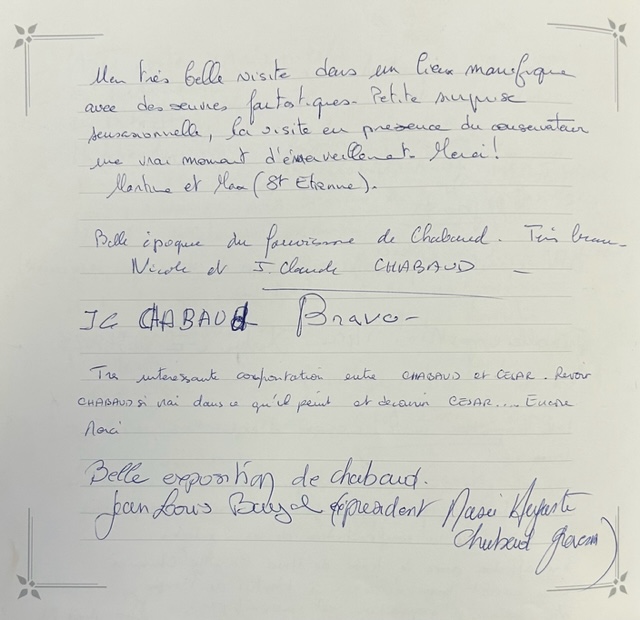 Une très belle visite dans un lieux manifique
avec des œuvres fantastiques. Petite surprise
sensasionnelle, la visite en présence du conservateur
une vrai moment d'émerveillement. Merci!
Martine et Max (St Etienne).
Belle époque du fauvisme de Chabaud. Très beau
Nicole et J. Claude CHABAUD
JC CHABAUD Bravo
Tres interessante confrontation entre CHABAUD et CESAR. Revoir
CHABAUD si vrai dans ce qu'il peint et decouvrir CESAR.... Encore
Merci
Belle exposition de chabaud.
Jean Louis président Musée Auguste
Chabaud